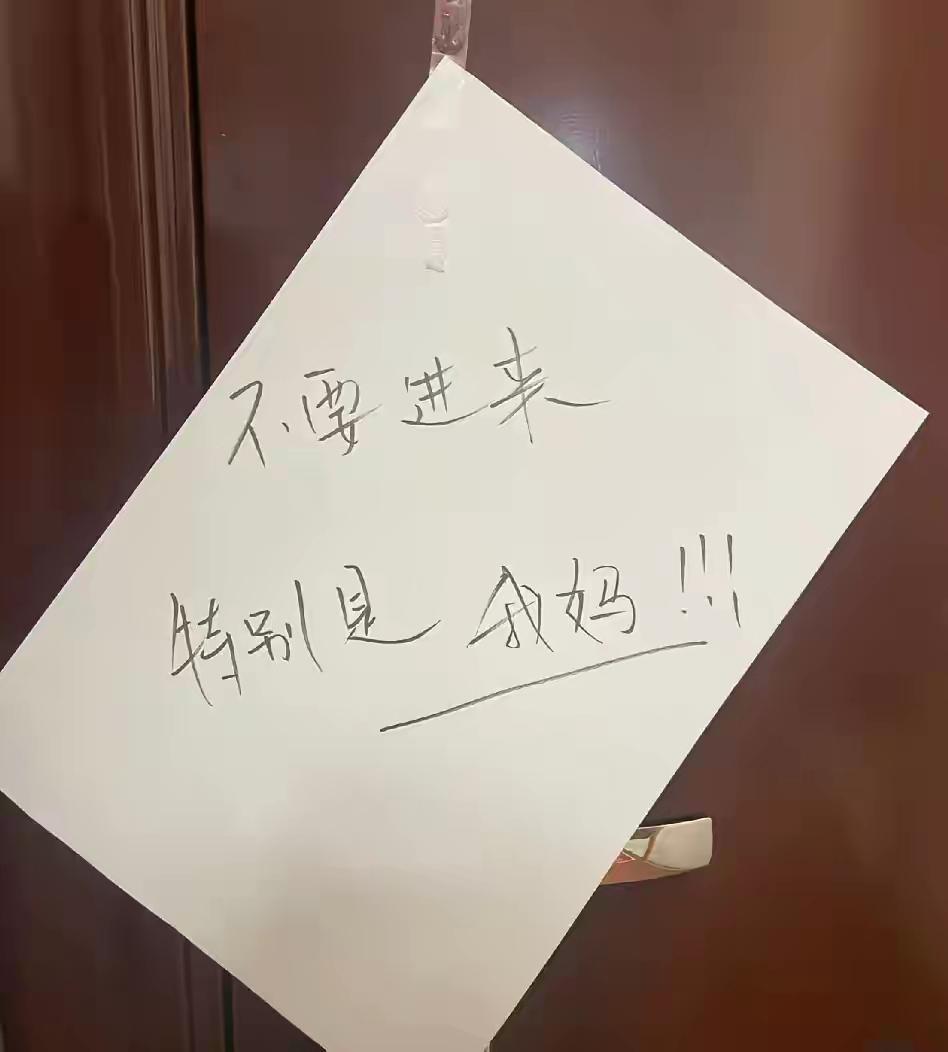 不要进来
特别是 我妈!!!